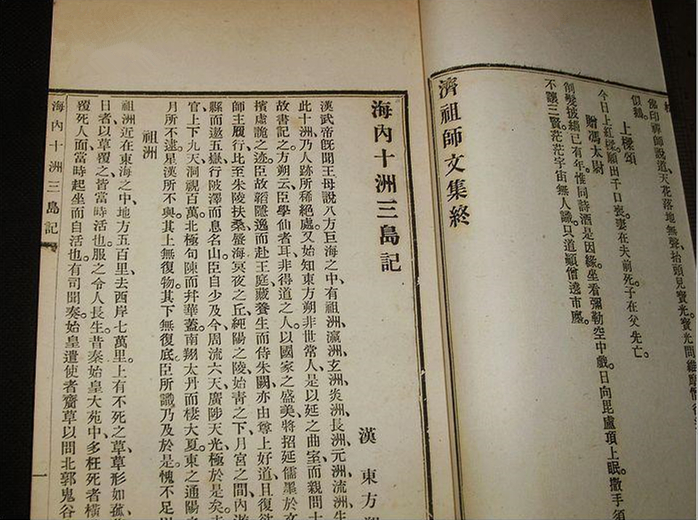 佛印禪師說道天花落地無聲抬頭見寶光寶光間
似鶴。
上樑頌
今日上紅樑願出千口喪妻在夫前死子在父先亡。
贈馮太尉
削髮披緇已有年惟同詩酒是因緣坐看彌勒空中戲日向毘盧頂上眠撒手須
不讓三賢茫茫宇宙無人識只道顛僧遶市廛。
濟祖師文集終
海內十洲三島記
漢 東方朔
漢武帝旣聞王母說八方巨海之中、有祖洲瀛洲玄洲炎洲長洲元洲流洲生
此十洲乃人跡所稀絕處。又始知東方朔非世常人、是以延之曲室、而親問十
故書記之。方朔云、臣學仙者耳、非得道之人、以國家之盛美將招延儒墨於文
擯虛詭之迹、臣故韜隱逸而赴王庭、藏養生而侍朱闕、亦由尊上好道、且復欲
師主履行、比至朱陵扶桑蜃海冥夜之丘、純陽之陵、始青之下、月宮之間、內遊
縣而遨五嶽、行陂澤而息名山、臣自少及今、周流六天、廣陟天光、極於是矣。未
官、上下九天、洞視百萬、北極句陳而幷華蓋、南翔太丹而棲大夏、東之通陽
月所不逮、星漢所不與、其上無復物、其下無復底、臣所識乃及於是。愧不足
祖洲
祖洲近在東海之中、地方五百里、去西岸七萬里、上有不死之草、草形如菰
日者以草覆之、皆當時活也。服之令人長生。昔秦始皇大苑中、多枉死者橫
覆死人面、當時起坐而自活也。有司聞奏、始皇遣使者齎草、以問北郭鬼谷
海內十洲三島記
一